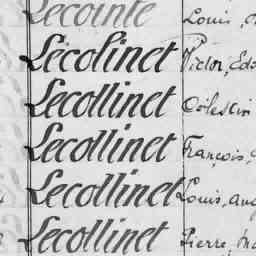 Lecointe Louis,
Lécolinet Victor, Edo
Lecollinet Célestin
Lecollinet François,
Lecollinet Louis, Aug
Lecollinet Pierre,